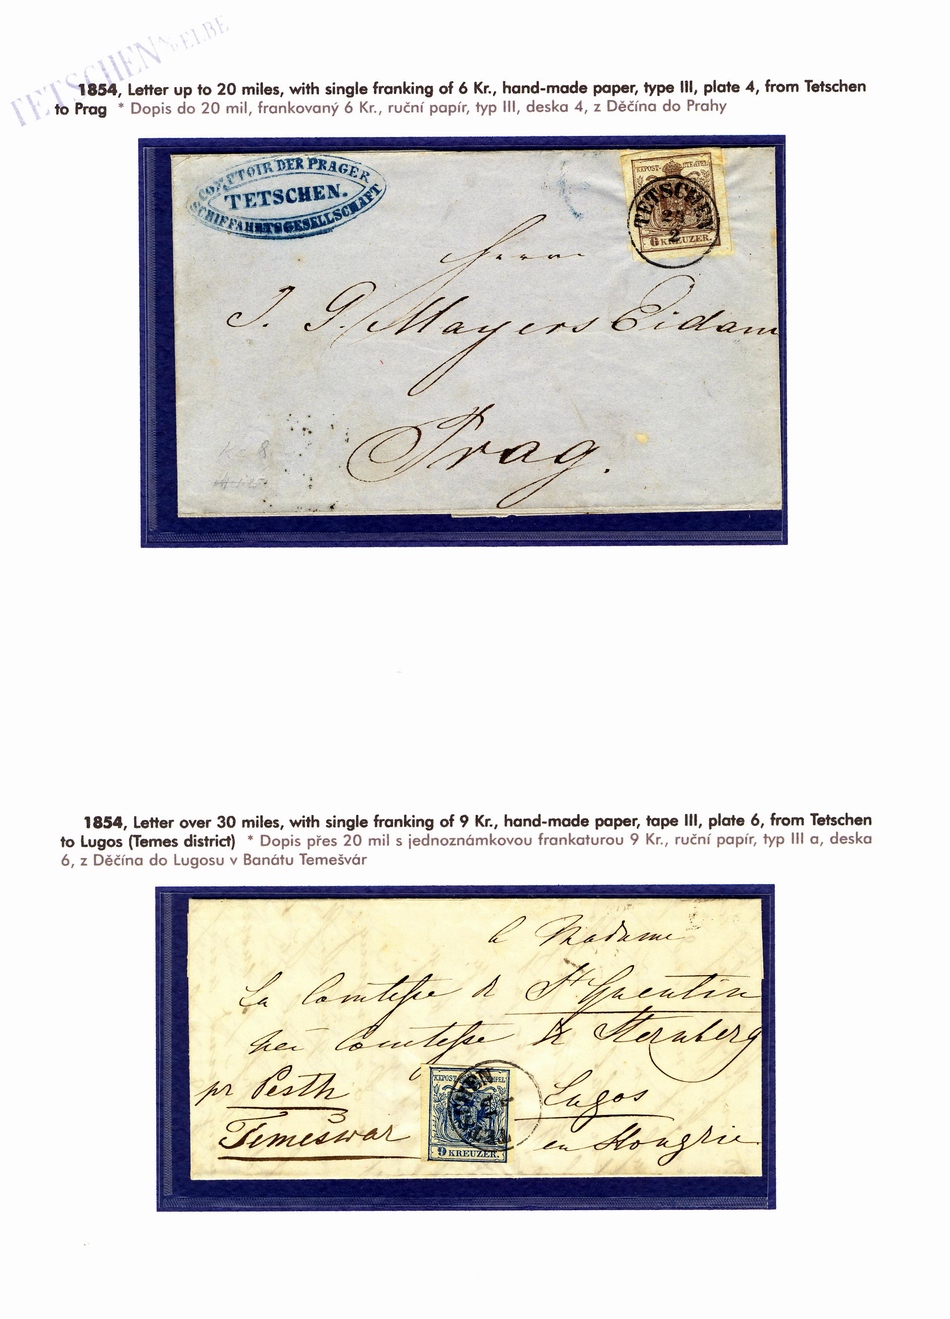 TETSCHEN a/ELBE
1854, Letter up to 20 miles, with single franking of 6 Kr., hand-made paper, type III, plate 4, from Tetschen
to Prag * Dopis do 20 mil, frankovaný 6 Kr., ruční papír, typ III, deska 4, z Děčína do Prahy
COMPTOIR DER PRAGER
TETSCHEN.
SCHIFFAHRTSGESELLSCHAFT
KKPOST-STEMPEL
TETSCHEN
2
6 KREUZER.
Herrn
J. G. Mayers Eidam
Prag.
1854, Letter over 30 miles, with single franking of 9 Kr., hand-made paper, tape III, plate 6, from Tetschen
to Lugos (Temes district) * Dopis přes 20 mil s jednoznámkovou frankaturou 9 Kr., ruční papír, typ III a, deska
6, z Děčína do Lugosu v Banátu Temešvár
à Madame
La Comtesse de St Quentin
née Comtesse de Sternberg
pr Pesth
Lugos
Temeswar
en Hongrie
KKPOST-STEMPEL
9 KREUZER.